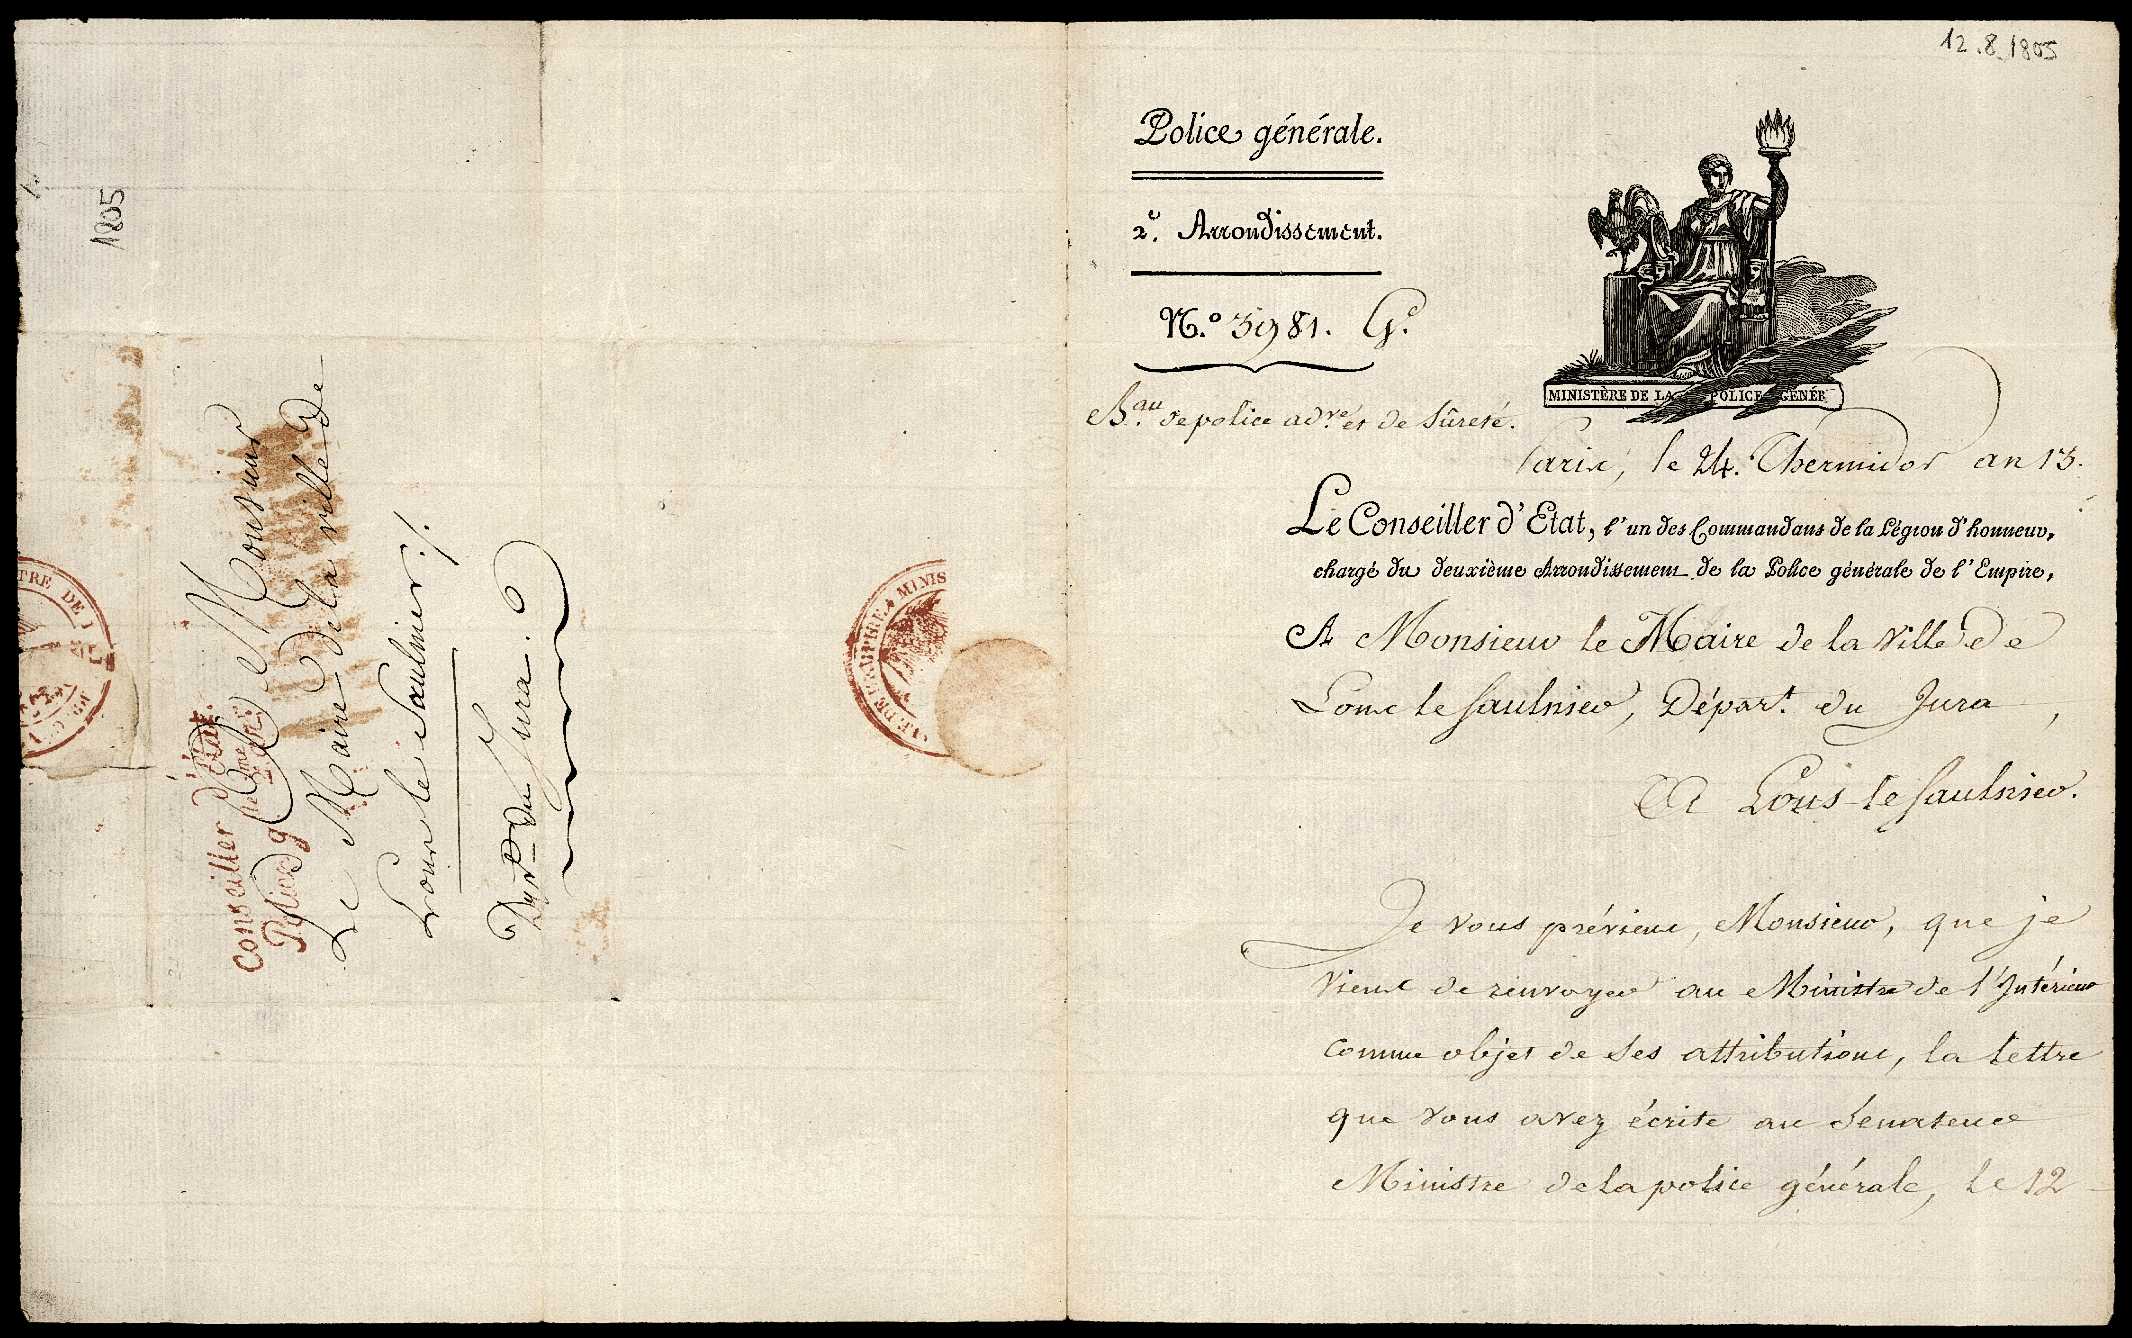 1805
Conseiller d'Etat
Police g
A Monsieur
Le Maire de la ville de
Lons le Saulnier ./.
Dépt. du Jura.
TRE DE L
DE L'EMPIRE MINIS
12.8.1805
Police générale.
2e. Arrondissement.
N.o 3981. Ge.
MINISTÈRE DE LA POLICE GÉNÉR
B.au de police adve. et de Sûreté.
Paris, le 24. Thermidor an 13.
Le Conseiller d'Etat, l'un des Commandans de la Légion d'honneur,
chargé du deuxième Arrondissement de la Police générale de l'Empire,
A Monsieur le Maire de la Ville de
Lons le Saulnier, Départ. du Jura,
A Lons-le Saulnier.
Je vous préviens, Monsieur, que je
viens de renvoyer au Ministre de l'Intérieur
comme objet de ses attributions, la lettre
que vous avez écrite au Sénateur
Ministre de la police générale, le 12